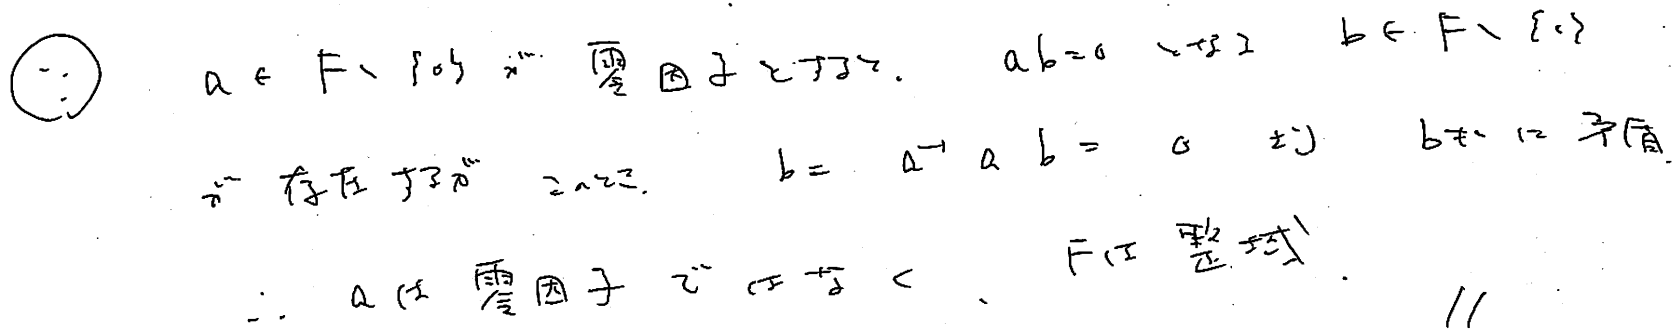 ∵ a ∈ F \ {0} が 零因子とすると. ab=0 となる b ∈ F \ {0}
が 存在するが このとき. b = a⁻¹ a b = 0 より b≠0 に 矛盾.
∴ a は 零因子 ではなく、 F は 整域. //